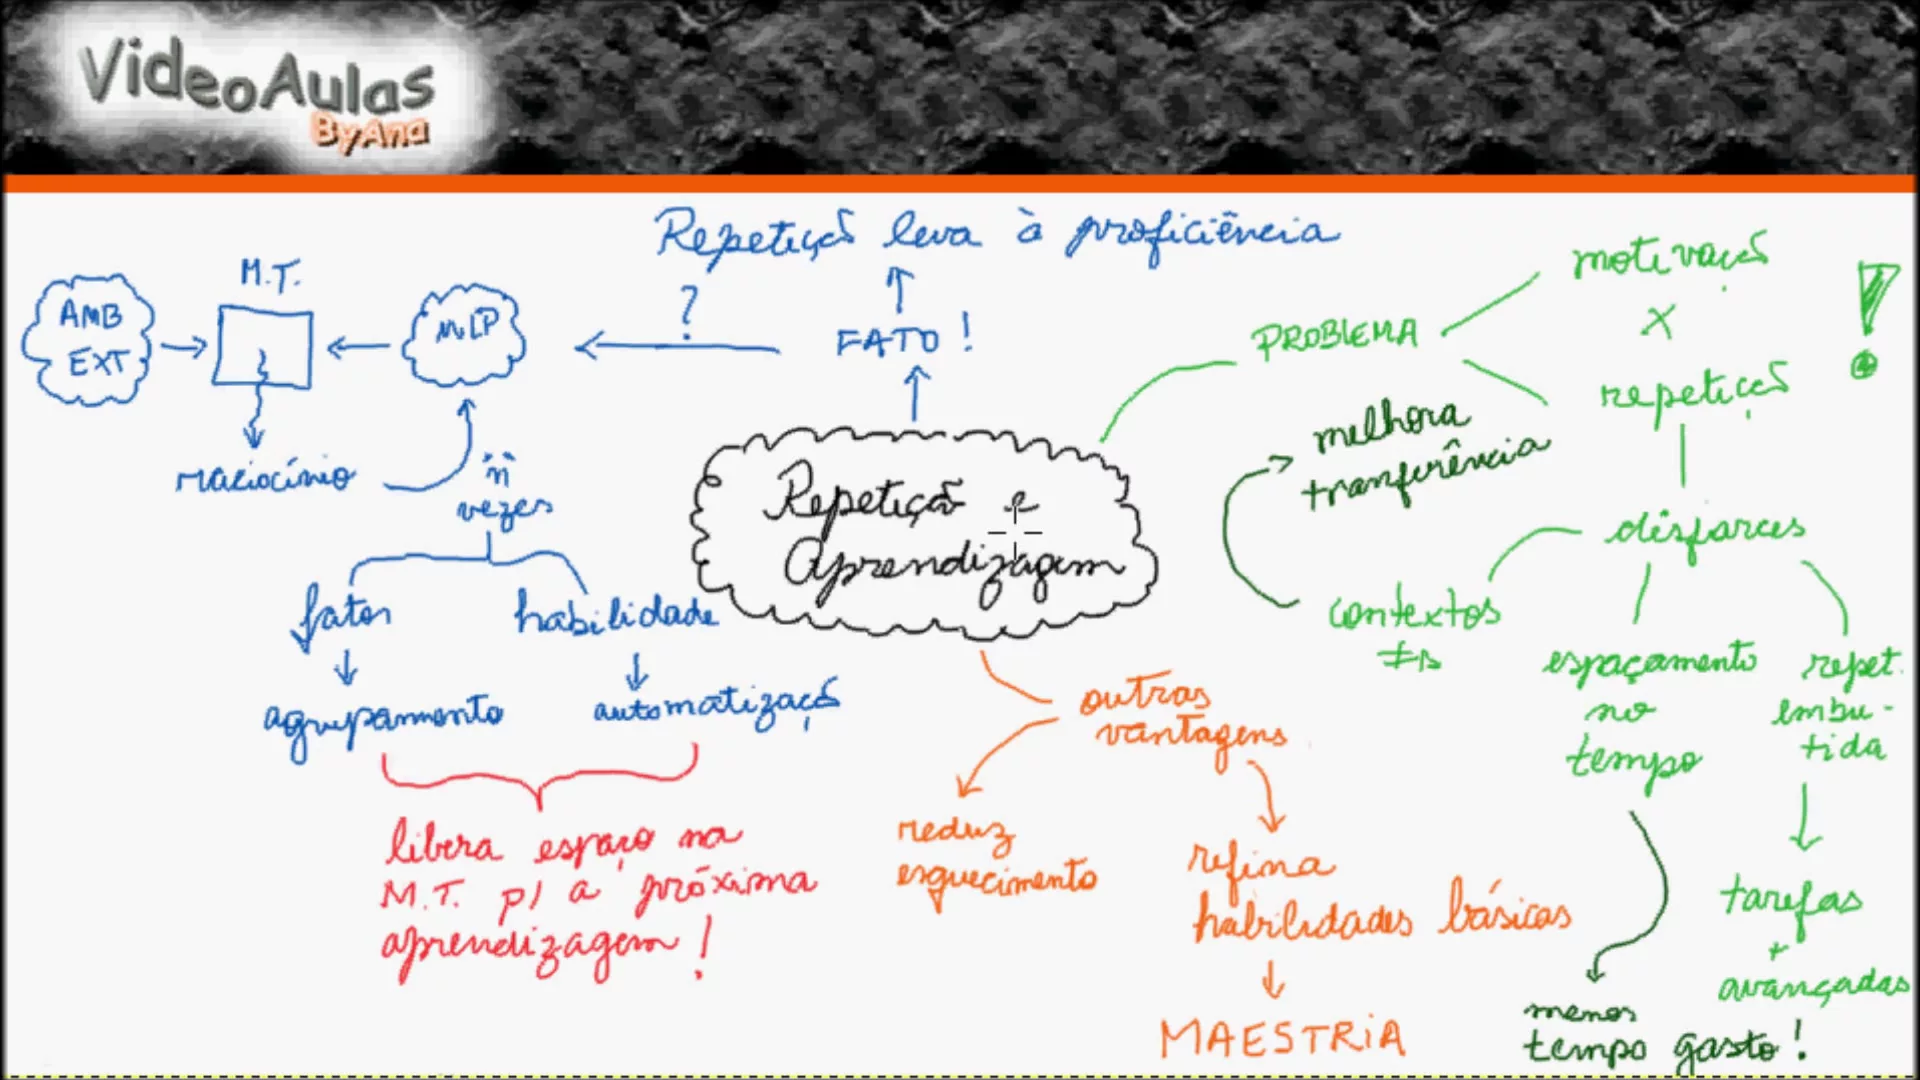 VideoAulas
ByAna
Repetição leva à proficiência
?
FATO!
AMB
EXT
M.T.
MLP
raciocínio
"n"
vezes
fatos
habilidade
agrupamento
automatização
libera espaço na
M.T. p/ a próxima
aprendizagem!
Repetição e
Aprendizagem
outras
vantagens
reduz
esquecimento
refina
habilidades básicas
MAESTRIA
PROBLEMA
motivação
x
repetição
!
disfarces
contextos
≠s
melhora
tranferência
espaçamento
no
tempo
menos
tempo gasto!
repet.
embu-
tida
tarefas
+
avançadas